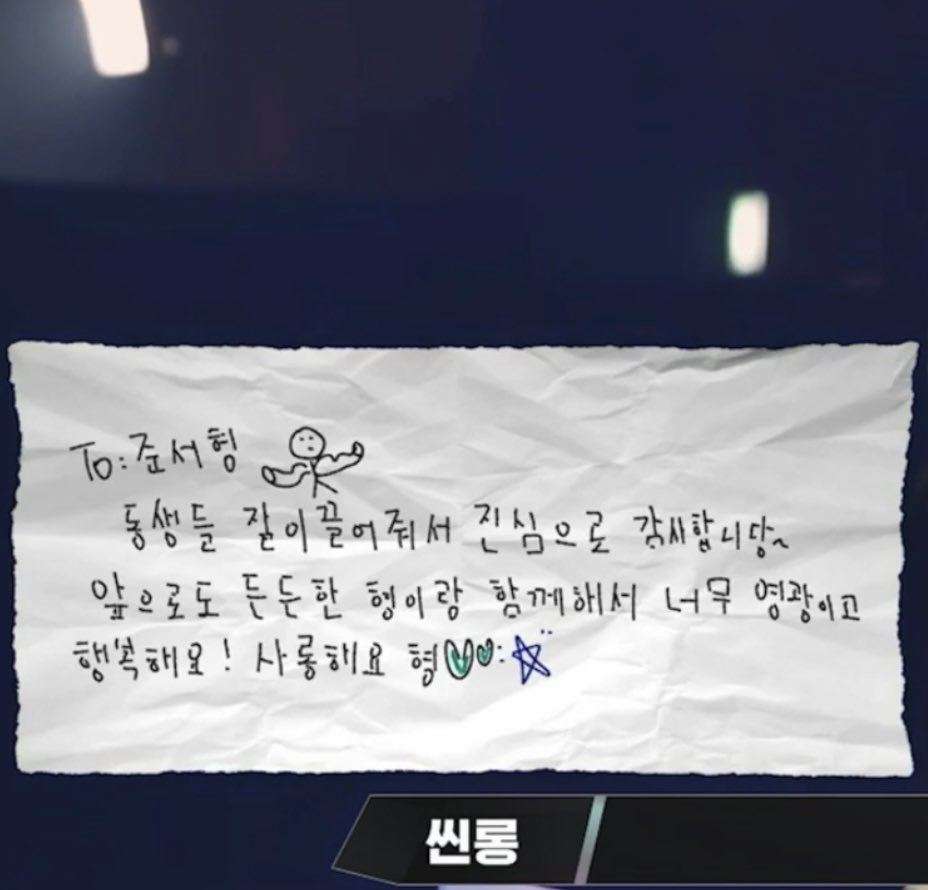 To: 준서형
동생들 잘이끌어줘서 진심으로 감사합니당~
앞으로도 든든한 형이랑 함께해서 너무 영광이고
행복해요! 사롱해요 형
씬롱